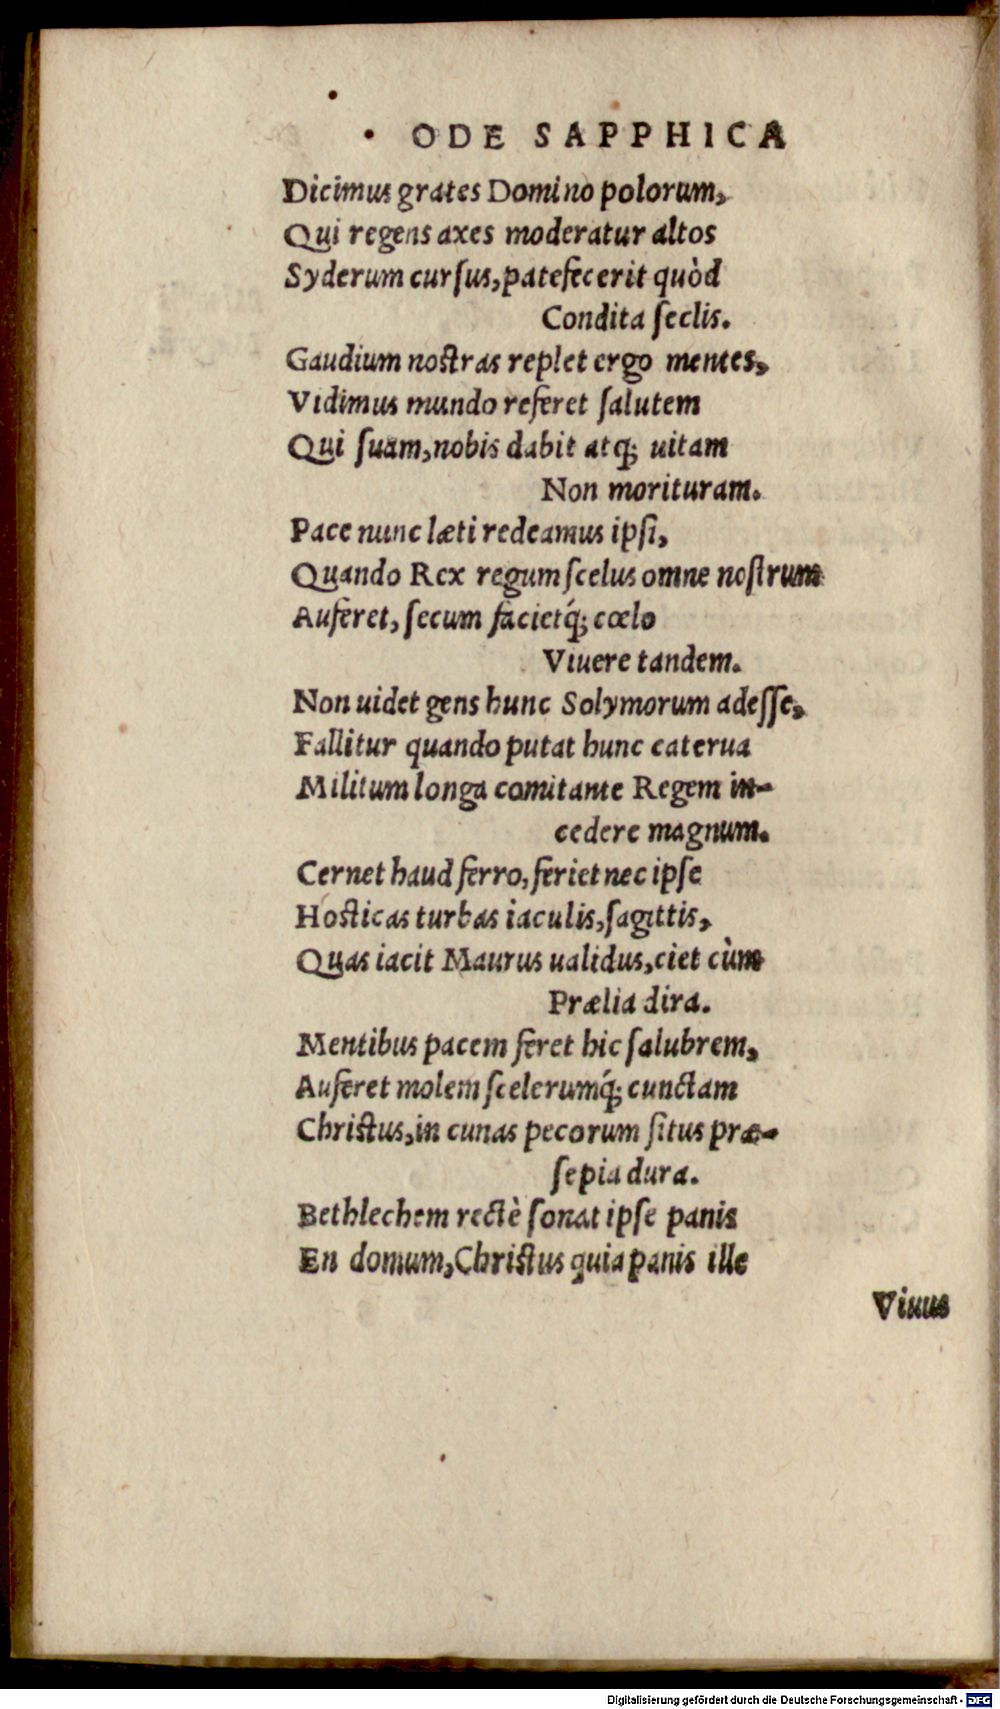 ODE SAPPHICA
Dicimus grates Domino polorum,
Qui regens axes moderatur altos
Syderum curſus, patefecerit quòd
Condita ſeclis.
Gaudium nostras replet ergo mentes,
Vidimus mundo referet ſalutem
Qui ſuam, nobis dabit atq; uitam
Non morituram.
Pace nunc læti redeamus ipſi,
Quando Rex regum ſcelus omne noſtrum
Auferet, ſecum facietq́; cœlo
Viuere tandem.
Non uidet gens hunc Solymorum adeſſe,
Fallitur quando putat hunc caterua
Militum longa comitante Regem in-
cedere magnum.
Cernet haud ferro, feriet nec ipſe
Hosticas turbas iaculis, ſagittis,
Quas iacit Maurus ualidus, ciet cùm
Prælia dira.
Mentibus pacem feret hic ſalubrem,
Auferet molem ſcelerumq́; cunctam
Christus, in cunas pecorum ſitus præ-
ſepia dura.
Bethlechem rectè ſonat ipſe panis
En domum, Christus quia panis ille
Viuus
Digitalisierung gefördert durch die Deutsche Forschungsgemeinschaft - DFG